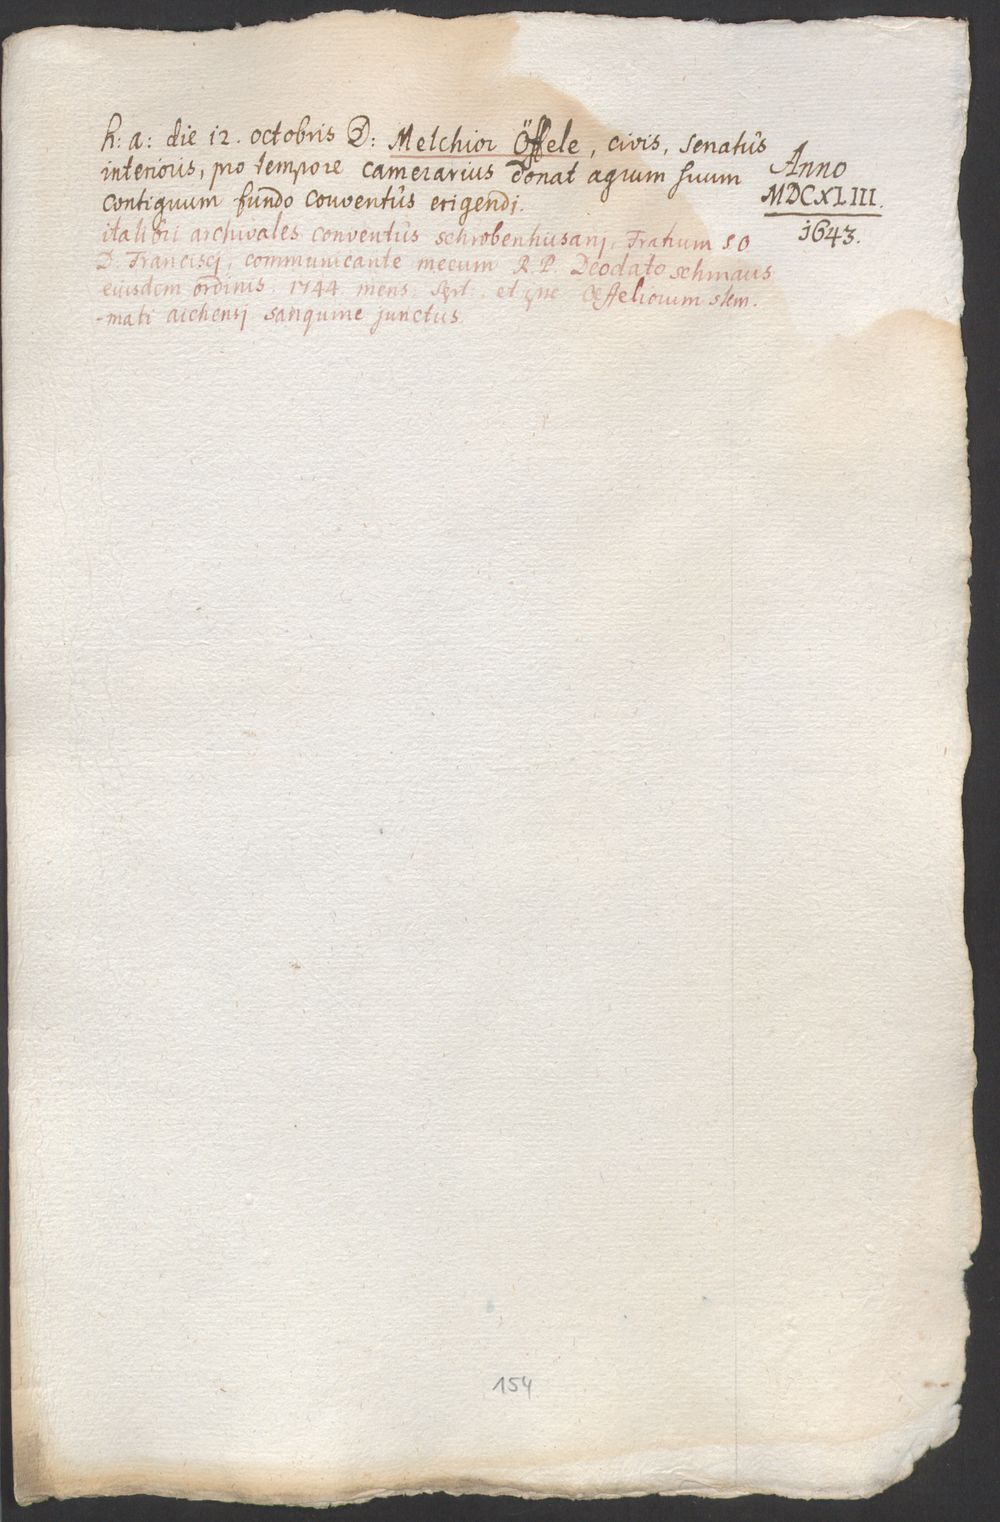 h: a: die 12. octobris D: Melchior Öffele, civis, senatûs
interioris, pro tempore camerarius donat agrum suum
contiguum fundo conventûs erigendj.
Anno
MDCXLIII.
1643.
ita libri archivales conventûs schrobenhusanj, Fratrum S. O
D. Franciscj, communicante mecum R. P. Deodato schmaus
eiusdem ordinis 1744 mens. Sept. et Œffeliorum stem-
-mati aichensj sanguine junctus.
154